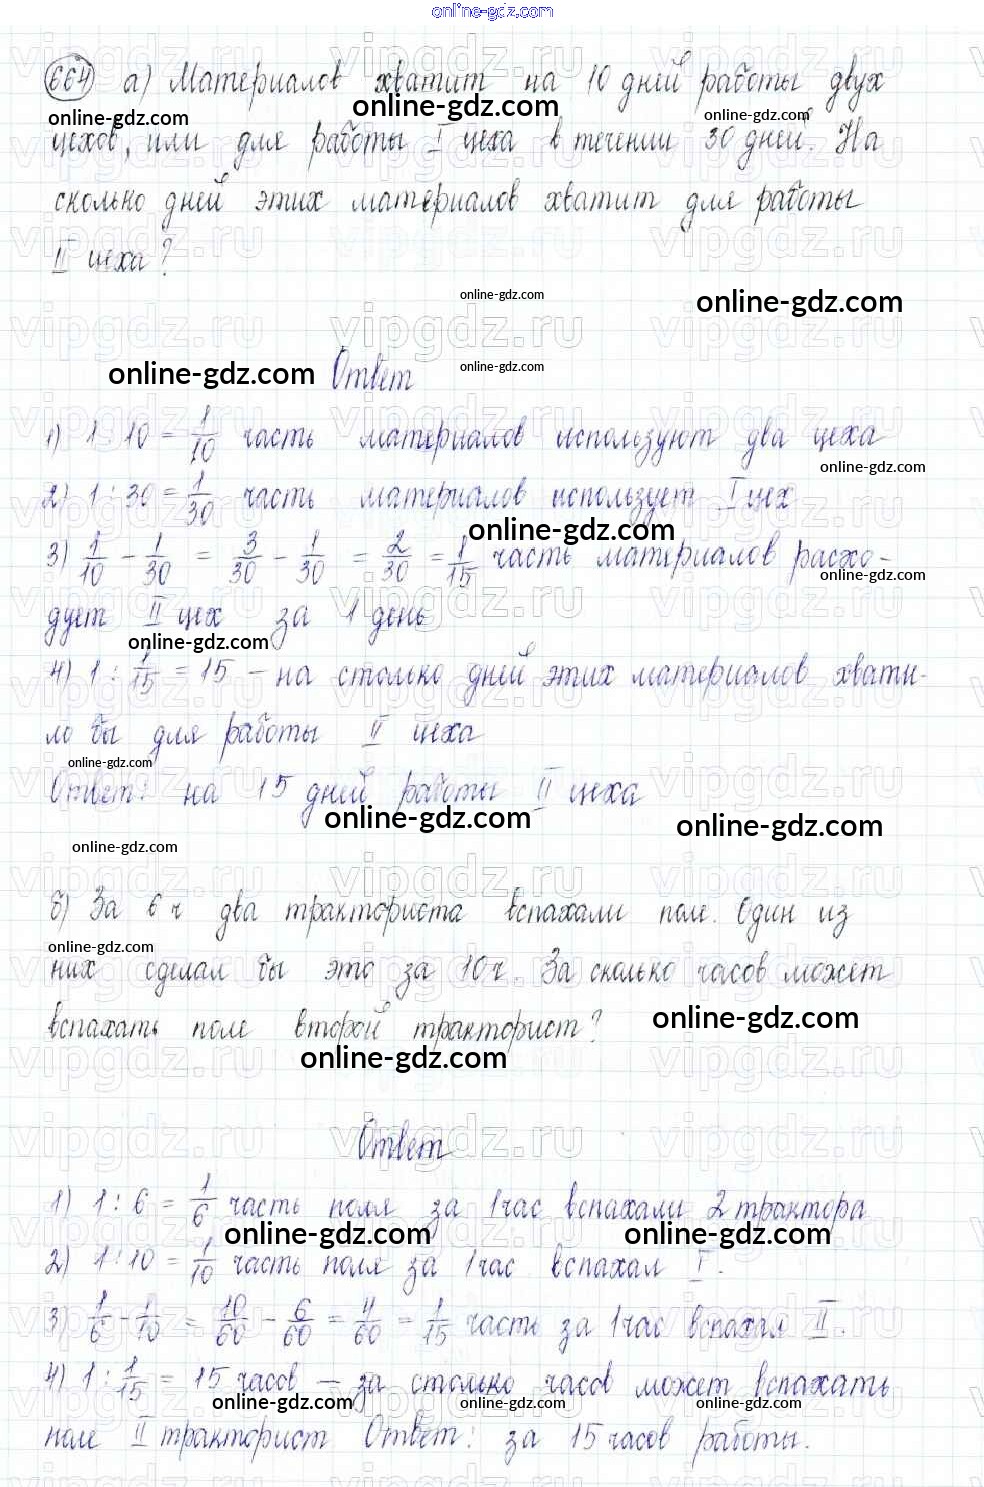 online-gdz.com
664 а) Материалов хватит на 10 дней работы двух
цехов, или для работы I цеха в течении 30 дней. На
сколько дней этих материалов хватит для работы
II цеха?
Ответ
1) 1 : 10 = 1/10 часть материалов используют два цеха
2) 1 : 30 = 1/30 часть материалов использует I цех
3) 1/10 - 1/30 = 3/30 - 1/30 = 2/30 = 1/15 часть материалов расхо-
дует II цех за 1 день
4) 1 : 1/15 = 15 – на столько дней этих материалов хвати-
ло бы для работы II цеха
Ответ: на 15 дней работы II цеха
б) За 6 ч два тракториста вспахали поле. Один из
них сделал бы это за 10 ч. За сколько часов может
вспахать поле второй тракторист?
Ответ
1) 1 : 6 = 1/6 часть поля за 1 час вспахали 2 трактора
2) 1 : 10 = 1/10 часть поля за 1 час вспахал I.
3) 1/6 - 1/10 = 10/60 - 6/60 = 4/60 = 1/15 часть за 1 час вспахал II.
4) 1 : 1/15 = 15 часов – за столько часов может вспахать
поле II тракторист Ответ: за 15 часов работы.